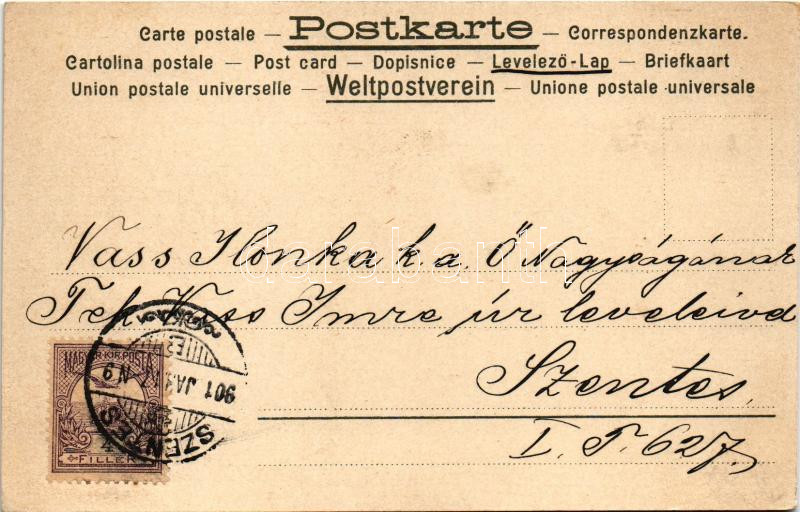 Carte postale — Postkarte — Correspondenzkarte.
Cartolina postale — Post card — Dopisnice — Levelező-Lap — Briefkaart
Union postale universelle — Weltpostverein — Unione postale universale
Vass Ilonka k. a. Ő Nagyságának
Tek Vass Imre úr leveleivel
Szentes
I. T. 627.
MAGYAR KIR. POSTA
FILLÉR
SZENTES
901 JAN